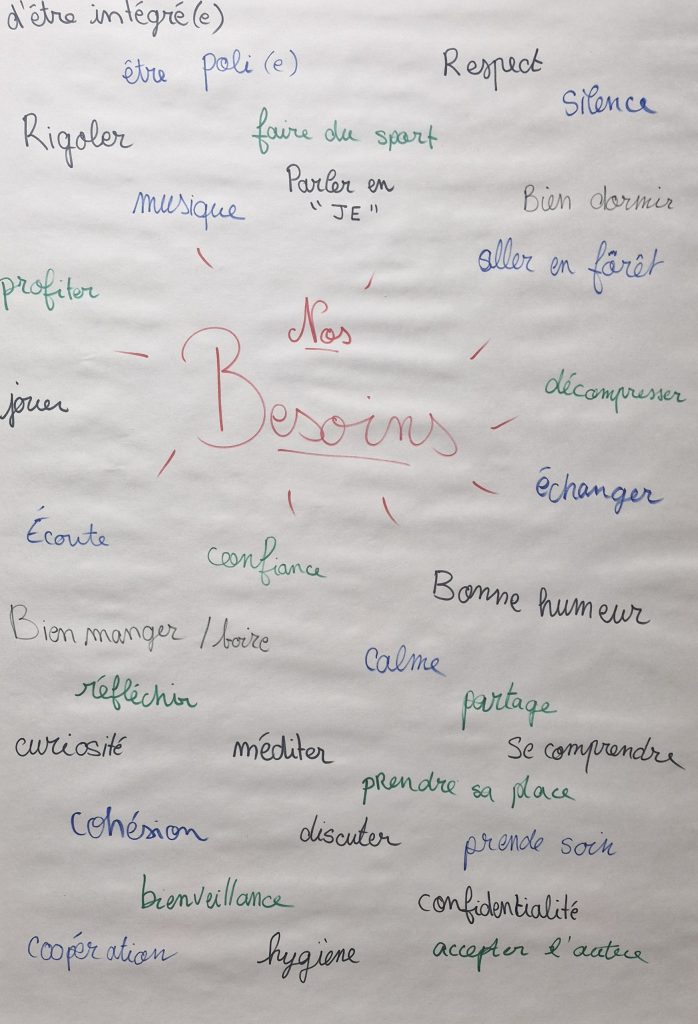 d'être intégré(e)
être poli(e) Respect
Silence
Rigoler faire du sport
Parler en
"JE"
musique Bien dormir
aller en fôrêt
profiter
Nos
Besoins
décompresser
jouer
échanger
Écoute confiance
Bonne humeur
Bien manger / boire
calme
réfléchir partage
curiosité méditer se comprendre
prendre sa place
cohésion discuter prende soin
bienveillance confidentialité
coopération hygiene accepter l'autre